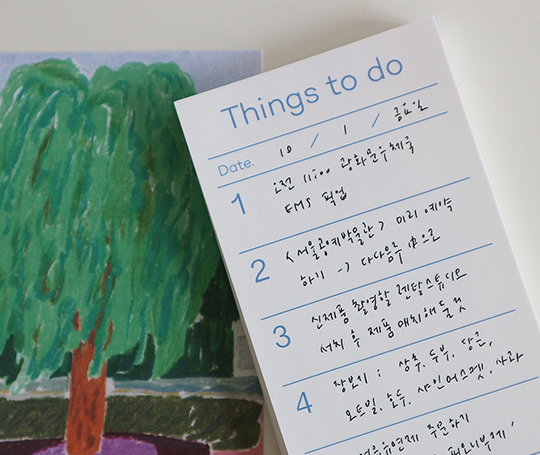 Things to do
Date. 10 / 1 / 금요일
1 오전 11:00 광화문우체국
EMS 픽업
2 <서울공예박물관> 미리 예약
하기 -> 다다음주 中으로
3 신제품 촬영할 렌탈스튜디오
서치 후 제품 매치해둘 것
4 장보기 : 상추, 두부, 당근,
오트밀, 만두, 샤인머스켓,
주문하기